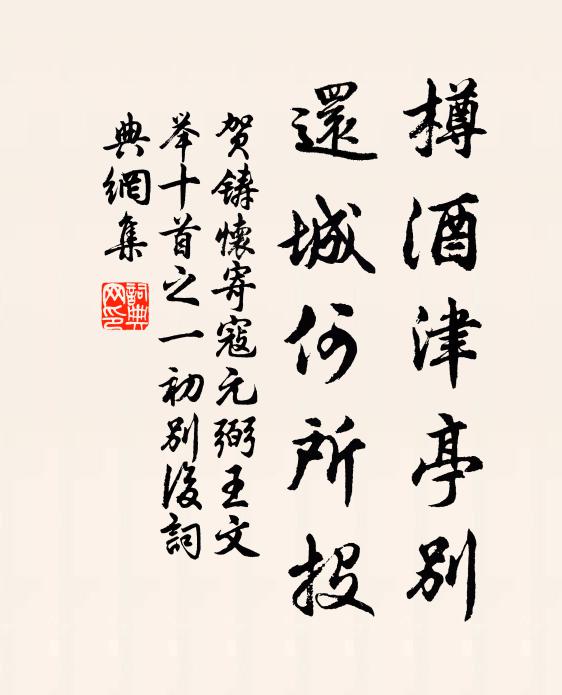 樽酒津亭別
還城何所投
贺鑄懷寄寇元弼王文
举十首之一初別後詞
典網集
詞典网印